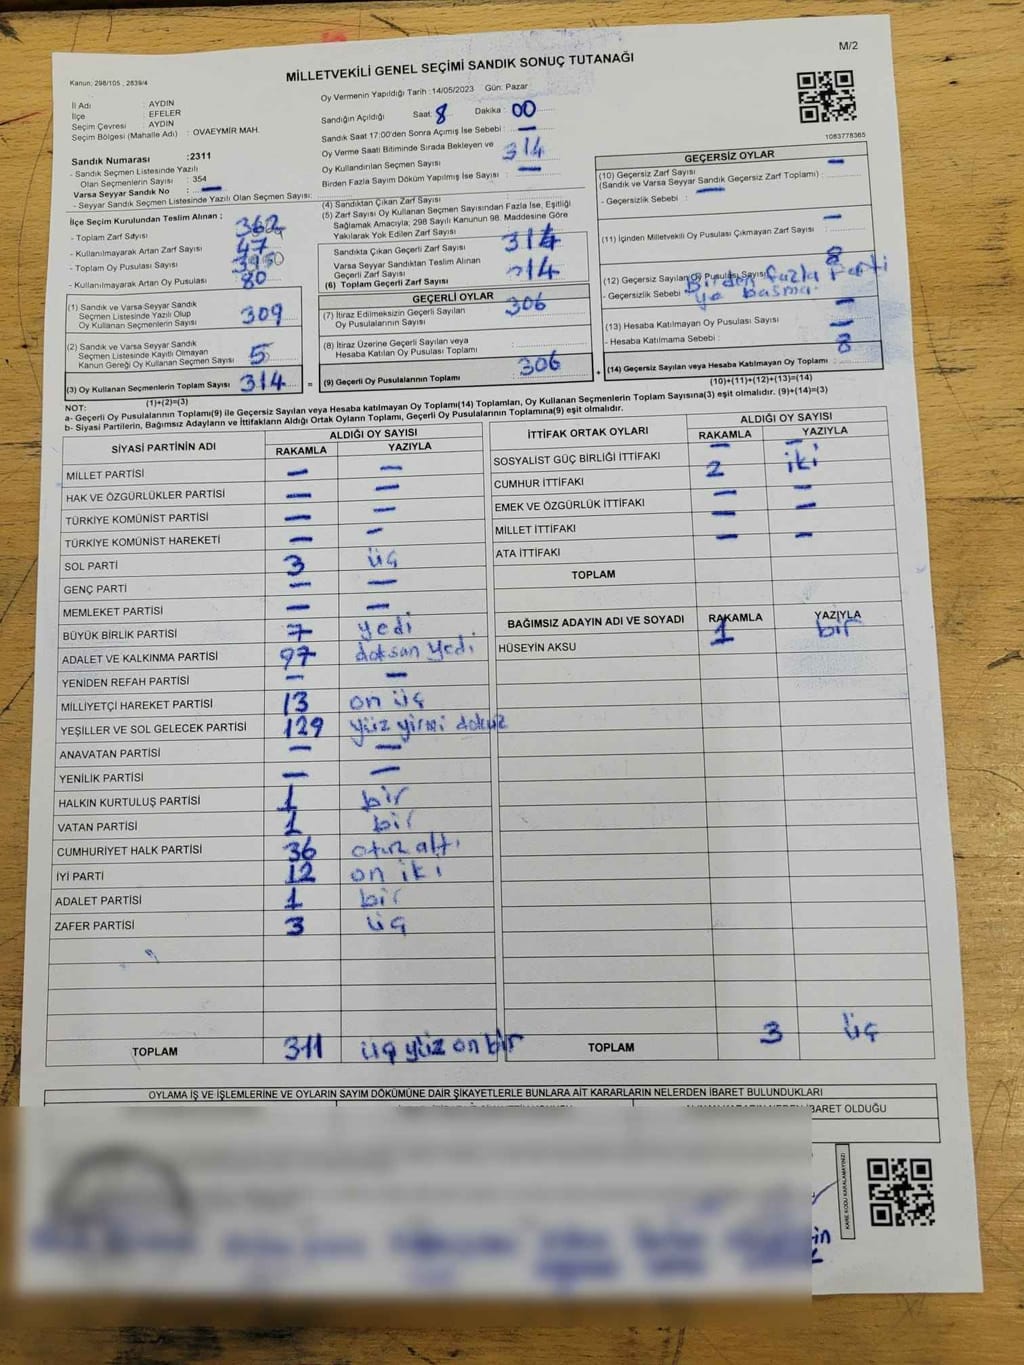 M/2
Kanun: 298/105 , 2839/4
MİLLETVEKİLİ GENEL SEÇİMİ SANDIK SONUÇ TUTANAĞI
İl Adı : AYDIN
İlçe : EFELER
Seçim Çevresi : AYDIN
Seçim Bölgesi (Mahalle Adı) : OVAEYMİR MAH.
Sandık Numarası :2311
- Sandık Seçmen Listesinde Yazılı
Olan Seçmenlerin Sayısı : 354
Varsa Seyyar Sandık No : —
- Seyyar Sandık Seçmen Listesinde Yazılı Olan Seçmen Sayısı:
Oy Vermenin Yapıldığı Tarih :14/05/2023 Gün: Pazar
Sandığın Açıldığı Saat: 8 Dakika : 00
Sandık Saat 17:00'den Sonra Açımış İse Sebebi : —
Oy Verme Saati Bitiminde Sırada Bekleyen ve
Oy Kullandırılan Seçmen Sayısı 314
Birden Fazla Sayım Döküm Yapılmış İse Sayısı : —
1083778365
İlçe Seçim Kurulundan Teslim Alınan ;
- Toplam Zarf Sayısı
- Kullanılmayarak Artan Zarf Sayısı 47
- Toplam Oy Pusulası Sayısı
- Kullanılmayarak Artan Oy Pusulası 80
(1) Sandık ve Varsa Seyyar Sandık
Seçmen Listesinde Yazılı Olup
Oy Kullanan Seçmenlerin Sayısı 309
(2) Sandık ve Varsa Seyyar Sandık
Seçmen Listesinde Kayıtlı Olmayan
Kanun Gereği Oy Kullanan Seçmen Sayısı 5
(3) Oy Kullanan Seçmenlerin Toplam Sayısı 314 =
(1)+(2)=(3)
(4) Sandıktan Çıkan Zarf Sayısı
(5) Zarf Sayısı Oy Kullanan Seçmen Sayısından Fazla İse, Eşitliği
Sağlamak Amacıyla; 298 Sayılı Kanunun 98. Maddesine Göre
Yakılarak Yok Edilen Zarf Sayısı
Sandıkta Çıkan Geçerli Zarf Sayısı 314
Varsa Seyyar Sandıktan Teslim Alınan
Geçerli Zarf Sayısı
(6) Toplam Geçerli Zarf Sayısı 314
GEÇERLİ OYLAR
(7) İtiraz Edilmeksizin Geçerli Sayılan
Oy Pusulalarının Sayısı 306
(8) İtiraz Üzerine Geçerli Sayılan veya
Hesaba Katılan Oy Pusulası Toplamı
(9) Geçerli Oy Pusulalarının Toplamı 306 +
GEÇERSİZ OYLAR
(10) Geçersiz Zarf Sayısı —
(Sandık ve Varsa Seyyar Sandık Geçersiz Zarf Toplamı)
- Geçersizlik Sebebi : —
(11) İçinden Milletvekili Oy Pusulası Çıkmayan Zarf Sayısı —
(12) Geçersiz Sayılan Oy Pusulası Sayısı 8
- Geçersizlik Sebebi Birden fazla Parti
ye basma.
(13) Hesaba Katılmayan Oy Pusulası Sayısı —
- Hesaba Katılmama Sebebi : —
(14) Geçersiz Sayılan veya Hesaba Katılmayan Oy Toplamı 8
(10)+(11)+(12)+(13)=(14)
NOT:
a- Geçerli Oy Pusulalarının Toplamı(9) ile Geçersiz Sayılan veya Hesaba katılmayan Oy Toplamı(14) Toplamları, Oy Kullanan Seçmenlerin Toplam Sayısına(3) eşit olmalıdır. (9)+(14)=(3)
b- Siyasi Partilerin, Bağımsız Adayların ve İttifakların Aldığı Ortak Oyların Toplamı, Geçerli Oy Pusulalarının Toplamına(9) eşit olmalıdır.
SİYASİ PARTİNİN ADI ALDIĞI OY SAYISI
RAKAMLA YAZIYLA
MİLLET PARTİSİ — —
HAK VE ÖZGÜRLÜKLER PARTİSİ — —
TÜRKİYE KOMÜNİST PARTİSİ — —
TÜRKİYE KOMÜNİST HAREKETİ — —
SOL PARTİ 3 üç
GENÇ PARTİ — —
MEMLEKET PARTİSİ — —
BÜYÜK BİRLİK PARTİSİ 7 yedi
ADALET VE KALKINMA PARTİSİ 97 doksan yedi
YENİDEN REFAH PARTİSİ — —
MİLLİYETÇİ HAREKET PARTİSİ 13 on üç
YEŞİLLER VE SOL GELECEK PARTİSİ 129 yüz yirmi dokuz
ANAVATAN PARTİSİ — —
YENİLİK PARTİSİ — —
HALKIN KURTULUŞ PARTİSİ 1 bir
VATAN PARTİSİ 1 bir
CUMHURİYET HALK PARTİSİ 36 otuz altı
İYİ PARTİ 12 on iki
ADALET PARTİSİ 1 bir
ZAFER PARTİSİ 3 üç
TOPLAM 311 üç yüz on bir
İTTİFAK ORTAK OYLARI ALDIĞI OY SAYISI
RAKAMLA YAZIYLA
SOSYALİST GÜÇ BİRLİĞİ İTTİFAKI — —
CUMHUR İTTİFAKI 2 iki
EMEK VE ÖZGÜRLÜK İTTİFAKI — —
MİLLET İTTİFAKI — —
ATA İTTİFAKI — —
TOPLAM
BAĞIMSIZ ADAYIN ADI VE SOYADI RAKAMLA YAZIYLA
HÜSEYİN AKSU 1 bir
TOPLAM 3 üç
OYLAMA İŞ VE İŞLEMLERİNE VE OYLARIN SAYIM DÖKÜMÜNE DAİR ŞİKAYETLERLE BUNLARA AİT KARARLARIN NELERDEN İBARET BULUNDUKLARI
İBARET OLDUĞU
KARE KODU KARALAMAYINIZ!